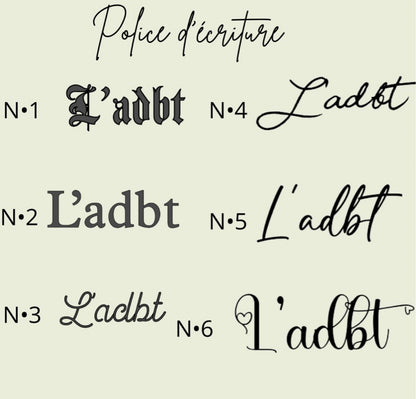 Police d'écriture
N•1 L'adbt
N•4 L'adbt
N•2 L'adbt
N•5 L'adbt
N•3 L'adbt
N•6 L'adbt